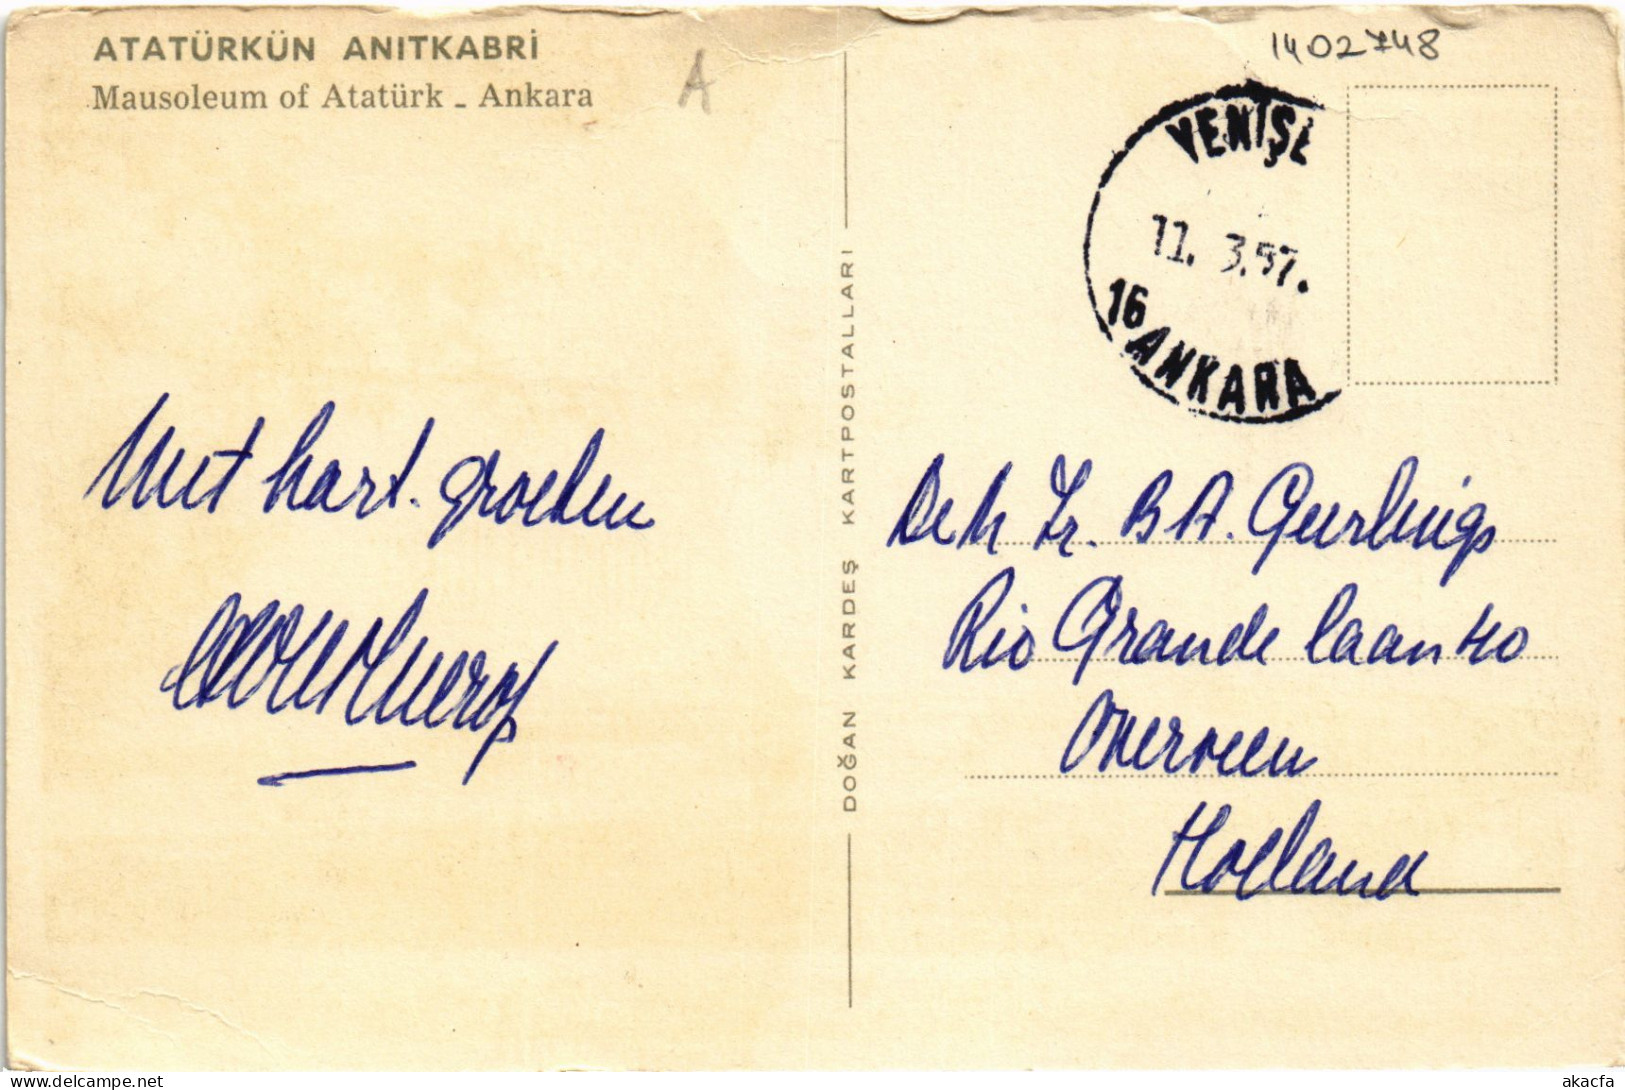 ATATÜRKÜN ANITKABRİ
Mausoleum of Atatürk - Ankara
A
1402748
YENİŞE
11. 3.57.
16 ANKARA
DOĞAN KARDEŞ KARTPOSTALLARI
Met hart. groeten
B A. Geurlings
Rio Grande laan 40
Overveen
Holland
akacfa